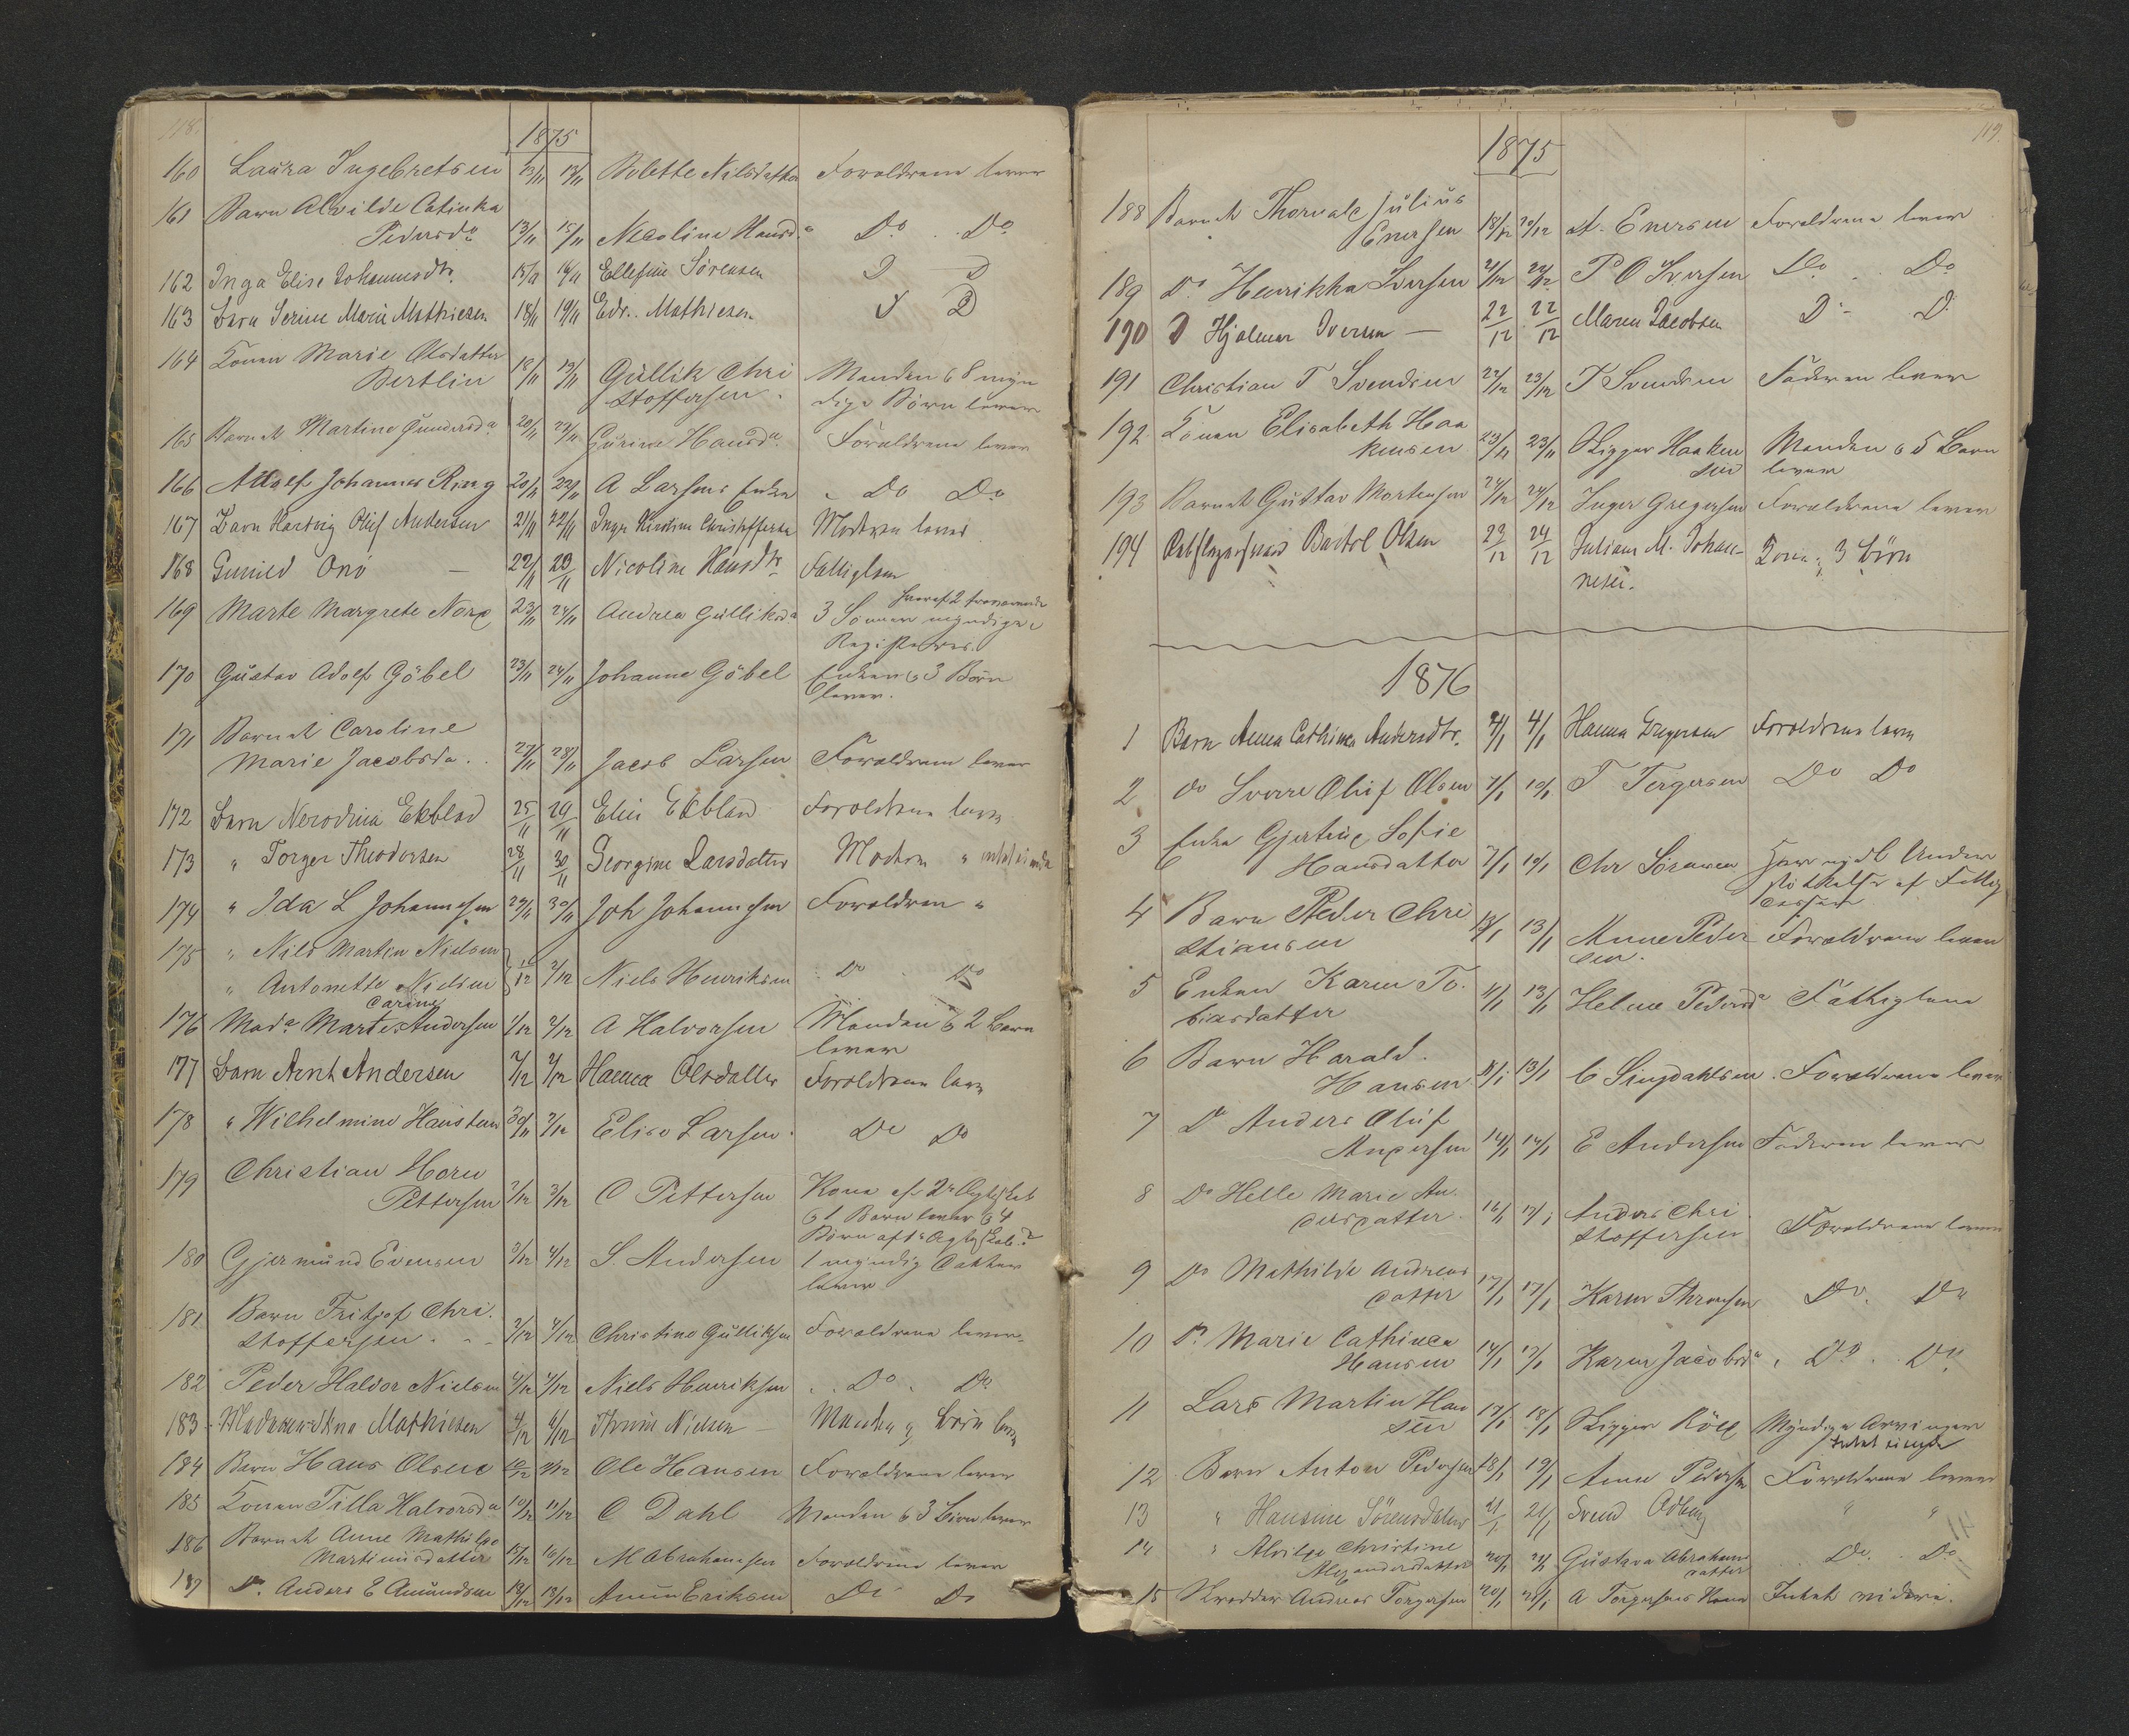 118.
1875
160 Laura Ingebretsen 13/11 13/11 Bolette Nilsdatter Forældrene lever
161 Barn Alvilde Catinka
Pedersda 13/11 15/11 Nicoline Hansda Do Do
162 Inga Elise Johannesdtr. 15/11 16/11 Ellefine Sörensen D D
163 Barn Serine Marie Mathiesen 18/11 19/11 Edv. Mathiesen D
164 Konen Marie Olsdatter
Bertlin 18/11 19/11 Gullik Chri Manden & 8 myn
stoffersen. dige Börn lever
165 Barnet Martine Gundersda 20/11 22/11 Gurine Hansda Forældrene lever
166 Adolf Johannes Ring 20/11 22/11 A Larsens Enke Do Do
167 Barn Hartvig Oluf Andersen 21/11 22/11 Inger Christoffersen Moderen lever
168 Gunild Onö 22/11 23/11 Nicoline Hansdtr Fattiglem
169 Marte Margrete 23/11 24/11 Andrea Gulliksda 3 Sönner myndige
hvoraf 2
170 Gustav Adolf Göbel 23/11 24/11 Johanne Göbel Enken & 3 Börn
lever.
171 Barnet Caroline
Marie Jacobsda. 27/11 28/11 Jacob Larsen Forældrene lever
172 Barn Ekblad 25/11 29/11 Elias Ekblad Forældrene lever
173 " Torger Theodorsen 28/11 30/11 Georgine Larsdatter Moderen "
174 " Ida L Johannesen 29/11 30/11 Joh Johannesen Forældrene "
175 " Nils Martin Nielsen
" Antonette Nielsen 1/12 2/12 Niels Henriksen Do Do
Carine
176 Mada Marte Andersen 1/12 2/12 A Halvorsen Manden & 2 Barn
lever
177 Barn Arnt Andersen 2/12 Hanna Olsdatter Forældrene lever
178 " Wilhelmine Hansteen 30/11 2/12 Elise Larsen Do Do
179 Christian Horn
Pettersen 2/12 3/12 O Pettersen Kone af 2t Ægteskab
& 1 Barn lever & 4
Börn af 1t Ægteskab.
180 Gjermund Evensen 3/12 4/12 S. Andersen 1 myndig Datter
lever
181 Barn Fritjof Chri.
stoffersen 3/12 4/12 Christine Gulliksen Forældrene lever
182 Peder Haldor Nielsen 4/12 4/12 Niels Henriksen Do Do
183 Mathiesen 4/12 6/12 Nielsen Manden & Börn lever
184 Barn Hans Olsen Ole Hansen Forældrene lever
185 Konen Tilla Halvorsda 10/12 11/12 C Dahl Manden & 3 Börn lever
186 Barnet Anne Mathilde
Martinusdatter 15/12 16/12 M Abrahamsen Forældrene lever
187 Do. Anders E Amundsen 18/12 18/12 Eriksen Do Do
119.
1875
188 Barnet Thorvald Julius
Enersen 18/12 20/12 A. Enersen Forældrene lever
189 Do Henrikka Iversen 21/12 22/12 P O Iversen Do Do
190 D Hjalmar Iversen 22/12 22/12 Maren Jacobsen D D
191 Christian T Svendsen 22/12 23/12 T Svendsen Faderen lever
192 Konen Elisabeth Haa
kensen 23/11 23/11 Skipper Haaken Manden & 5 Barn
sen lever
193 Barnet Gustav Mortensen 24/12 24/12 Inger Gregersen Forældrene lever
194 Bartol Olsen 23/12 24/12 Juliane M. Johan- Kone & 3 Börn
nesen.
1876
1 Barn Anna Cathinca Andersdtr. 4/1 4/1 Hanna Gregersen Forældrene lever
2 do Sverre Oluf Olsen 7/1 10/1 T Torgersen Do Do
3 Enke Gjertrud Sofie
Hansdatter 7/1 10/1 Chr Sörensen Under
stöttelse af Fattig
cassen
4 Barn Peder Chri
stiansen 13/1 13/1 Anne Peder Forældrene lever
sen.
5 Enken Karen To.
biasdatter 11/1 13/1 Helene Pedersda Fattiglem
6 Barn Harald.
Hansen 13/1 C Singdahlsen Forældrene lever
7 Do Anders Oluf
Andersen 14/1 14/1 E Andersen Faderen lever
8 Do Helle Marie An.
dersdatter 16/1 17/1 Anders Chri
stoffersen Forældrene lever
9 Do Mathilde Andreas
datter 17/1 17/1 Karen Thronsen Do. Do
10 Do Marie Cathinca
Hansen 14/1 17/1 Karen Jacobsda Do. Do
11 Lars Martin Han
sen 17/1 18/1 Skipper Röed Myndige Arvinger
12 Barn Anton Pedersen 18/1 19/1 Anne Pedersen Forældrene lever
13 " Hansine Sörensdatter 21/1 21/1 Svend " "
14 " Alvilde Christine
Alexandersdatter 20/1 21/1 Gustava Abraham Do. Do.
datter
15 Skredder Andreas Torgersen 20/1 21/1 A Torgersens Kone Intet videre.